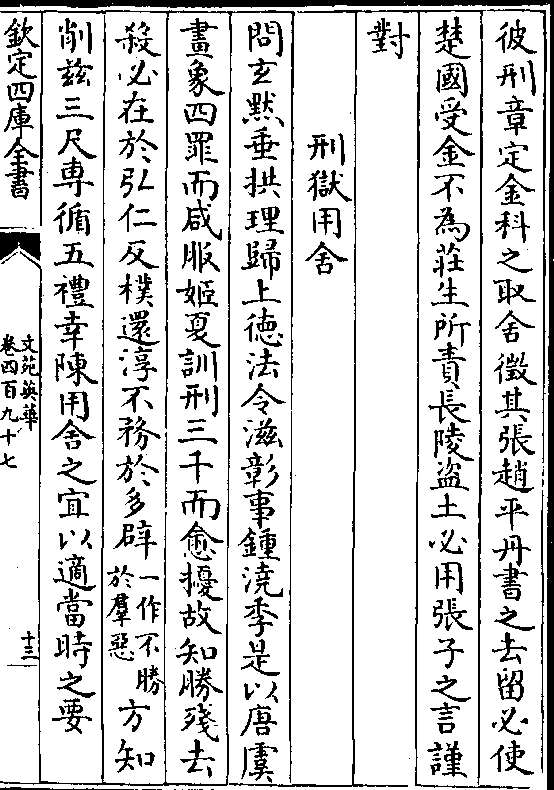 彼刑章定金科之取舍徴其張趙平丹書之去留必使
楚國受金不為莊生所責長陵盜土必用張子之言謹
對
刑獄用舍
問玄黙垂拱理歸上徳法令滋彰事鍾澆季是以唐虞
畫象四罪而咸服姬夏訓刑三千而愈擾故知勝殘去
殺必在於弘仁反樸還淳不務於多辟一作不勝於羣惡方知
削兹三尺専循五禮幸陳用舍之宜以適當時之要
欽定四庫全書
文苑英華
卷四百九十七
十三